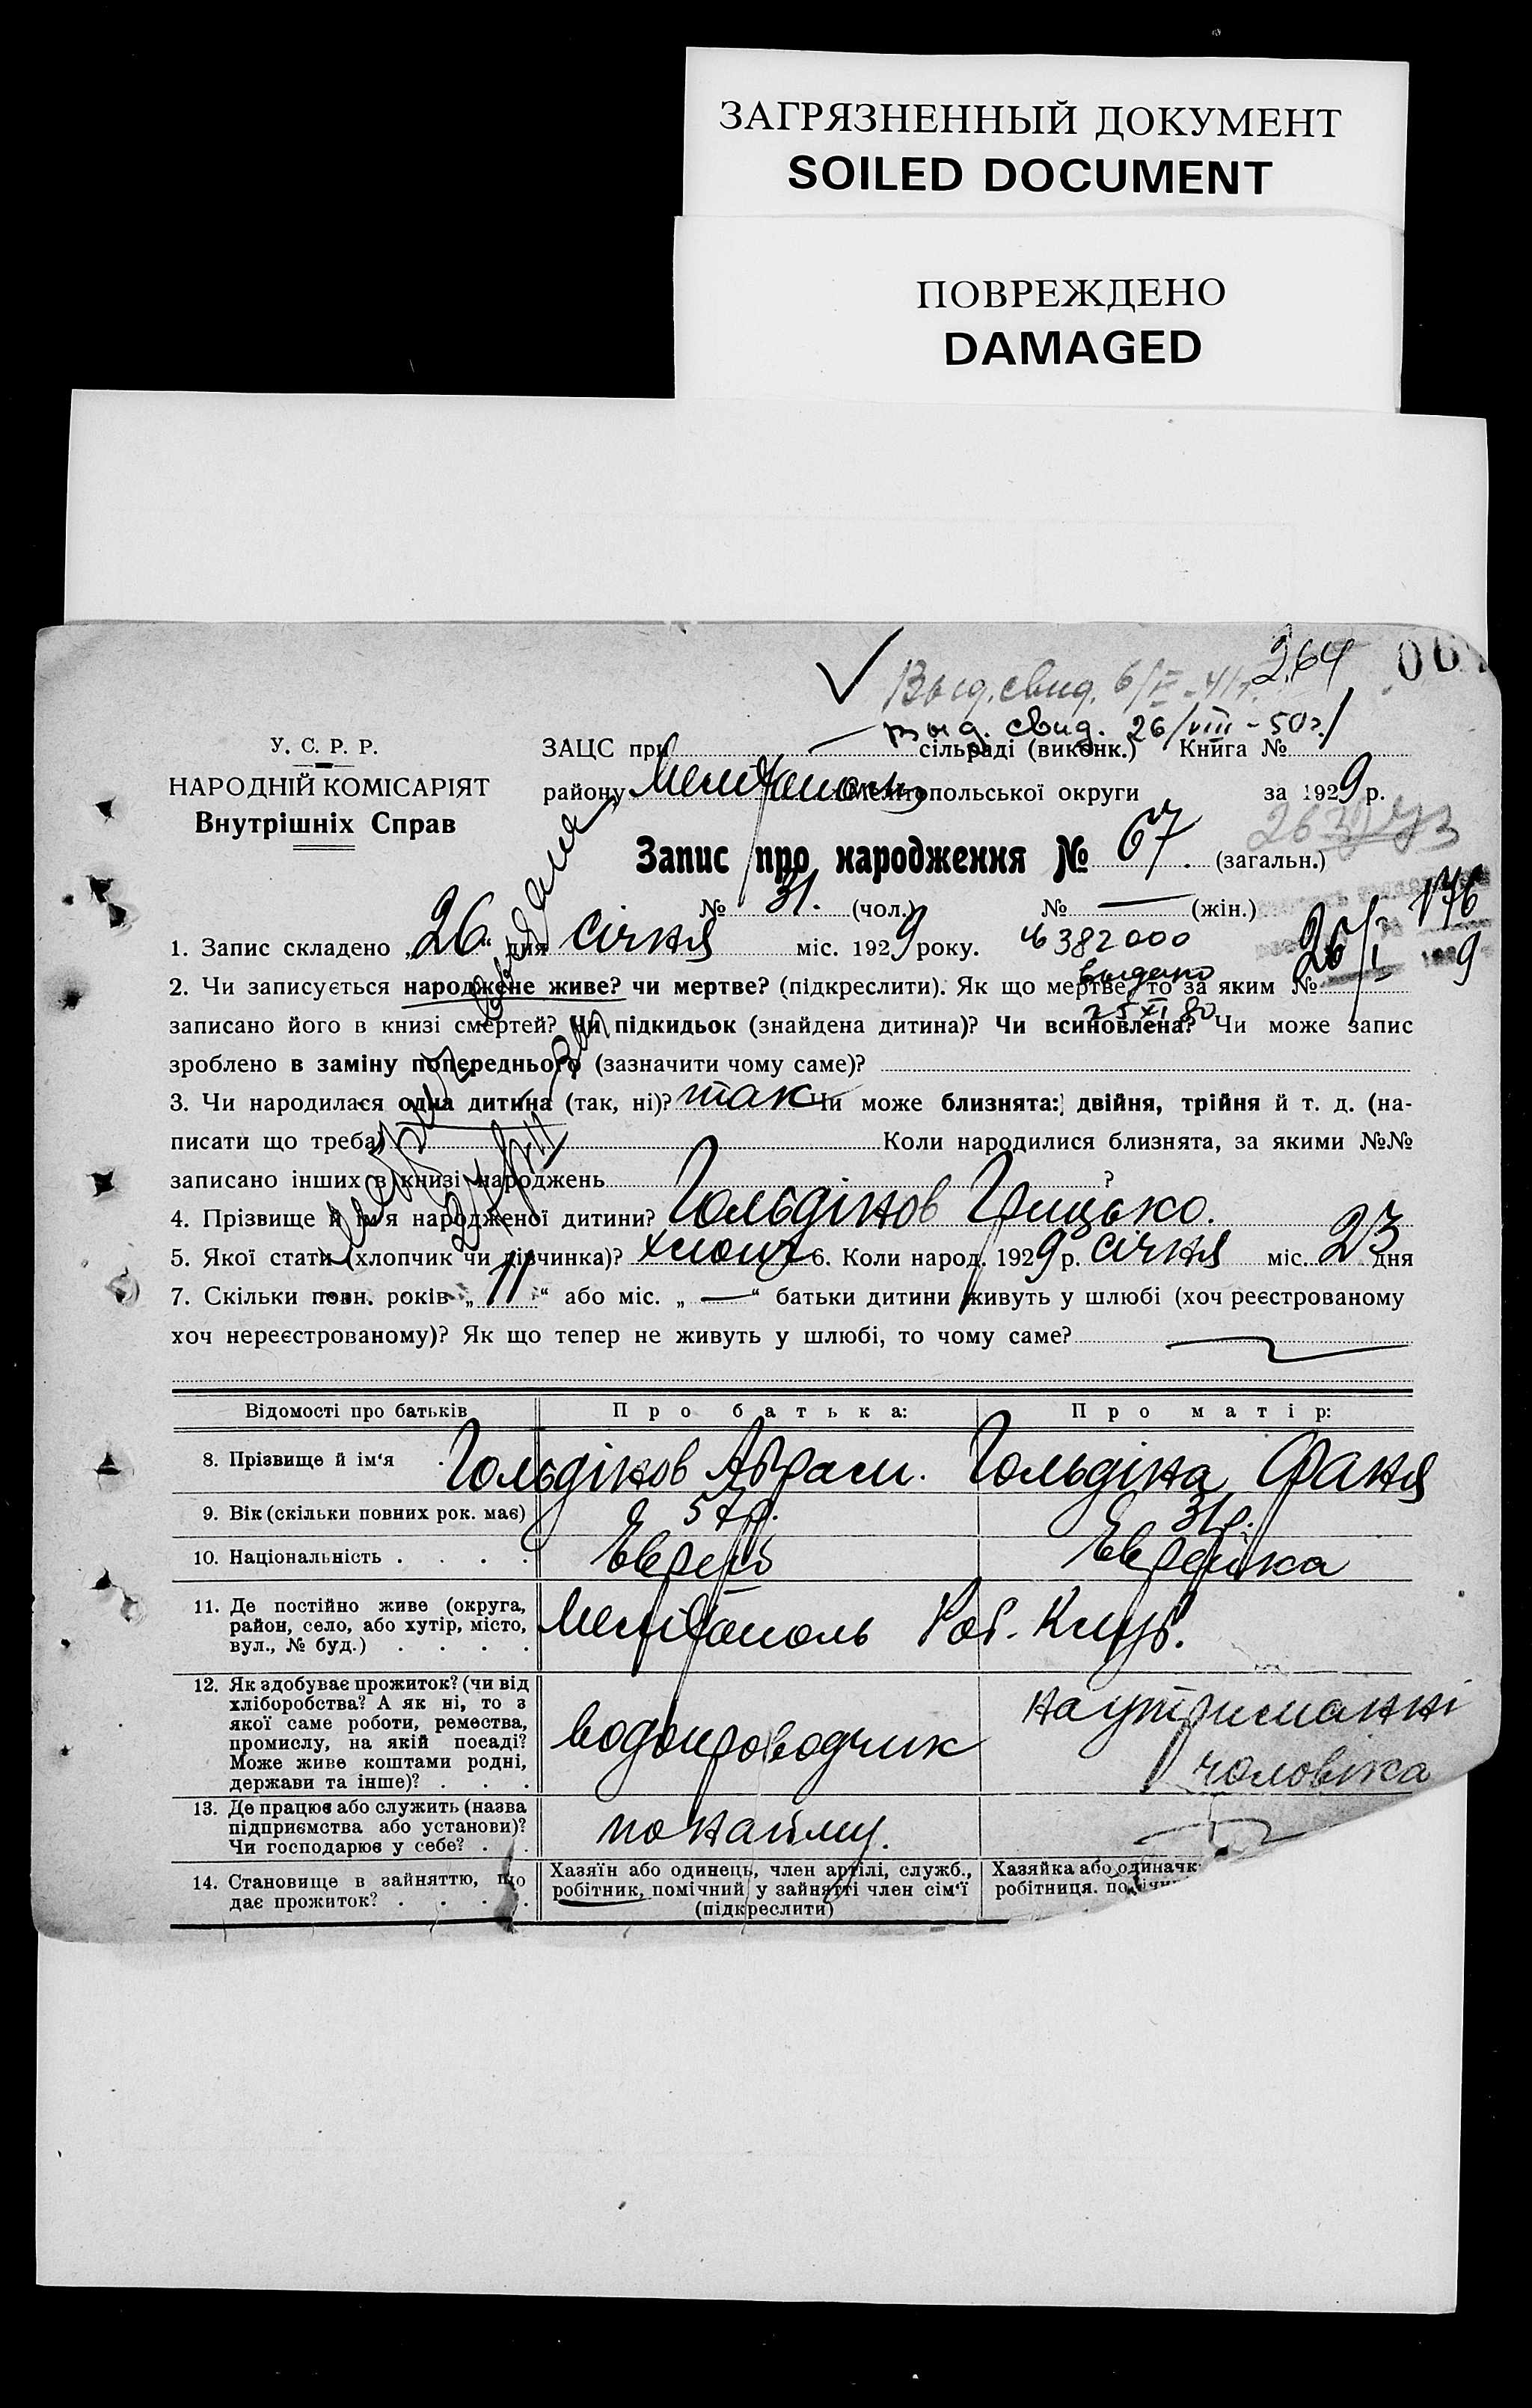 ЗАГРЯЗНЕННЫЙ ДОКУМЕНТ
SOILED DOCUMENT
ПОВРЕЖДЕНО
DAMAGED
264
Выд. свид. 6/II - 41 г.
выд. свид. 26/VIII - 50 г.
У. С. Р. Р.
НАРОДНІЙ КОМІСАРІЯТ
Внутрішніх Справ
ЗАЦС при — сільраді (виконк.) Книга №
району Мелітополь Мелітопольської округи за 1929 р.
Запис про народження № 67. (загальн.)
№ 31. (чол.) № — (жін.)
176
1. Запис складено „26“ дня січня міс. 1929 року.
6382000
26/I 9
2. Чи записується народжене живе? чи мертве? (підкреслити). Як що мертве, то за яким №
выдано
25 XI 80
записано його в книзі смертей? Чи підкидьок (знайдена дитина)? Чи всиновлена? Чи може запис
зроблено в заміну попереднього (зазначити чому саме)?
3. Чи народилася одна дитина (так, ні)? так Чи може близнята: двійня, трійня й т. д. (на-
писати що треба) Коли народилися близнята, за якими №№
записано інших в книзі народжень ?
4. Прізвище й ім'я народженої дитини? Гольдінов Грицько.
5. Якої стати (хлопчик чи дівчинка)? хлопч 6. Коли народ. 1929 р. січня міс. 23 дня
7. Скільки повн. років „11“ або міс. „—“ батьки дитини живуть у шлюбі (хоч реєстрованому
хоч нереєстрованому)? Як що тепер не живуть у шлюбі, то чому саме?
Відомості про батьків Про батька: Про матір:
8. Прізвище й ім'я . Гольдінов Абрам. Гольдіна Фаня
9. Вік (скільки повних рок. має) 57 р. 31 р.
10. Національність . . . . Еврей Еврейка
11. Де постійно живе (округа,
район, село, або хутір, місто,
вул., № буд.) . . . .
Мелітополь Роб. Клуб.
12. Як здобуває прожиток? (чи від
хліборобства? А як ні, то з
якої саме роботи, ремества,
промислу, на якій посаді?
Може живе коштами родні,
держави та інше)? . . .
водопроводчик
на утриманні
чоловіка
13. Де працює або служить (назва
підприємства або установи)?
Чи господарює у себе? . .
по найму.
14. Становище в зайняттю, що
дає прожиток? . . . .
Хазяїн або одинець, член артілі, служб.,
робітник, помічний у зайнятті член сім'ї
(підкреслити)
Хазяйка або одиначк
робітниця.